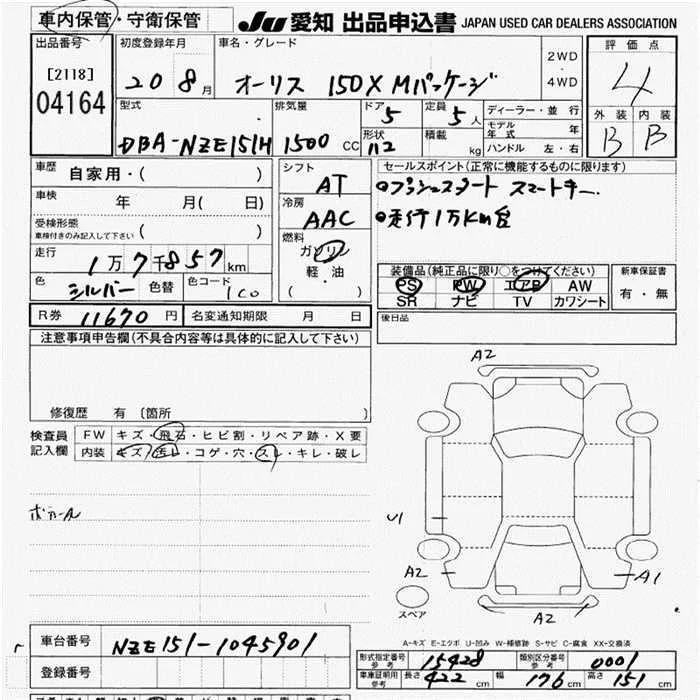 車内保管・守衛保管 JU 愛知 出品申込書 JAPAN USED CAR DEALERS ASSOCIATION
出品番号 [2118] 04164
初度登録年月 20 8月
車名・グレード オーリス 150X Mパッケージ
2WD・4WD
評価点 4
外装 B 内装 B
型式 DBA-NZE151H
排気量 1500 CC
ドア 5
定員 5人
形状 112
積載 kg
ディーラー・並行
モデル年式 年
ハンドル 左・右
車歴 自家用・( )
車検 年 月( 日)
受検形態 車検付きのみ記入して下さい ( )
走行 1万7千857km
色 シルバー 色替 色コード 1C0
シフト AT
冷房 AAC
燃料 ガソリン 軽油 ( )
セールスポイント(正常に機能するものに限ります)
・プッシュスタート スマートキー
・走行1万km台
装備品(純正品に限り○をつけてください)
PS PW エアB AW
SR ナビ TV カワシート
新車保証書 有・無
R券 11670円 名変通知期限 月 日
後日品
注意事項申告欄(不具合内容等は具体的に記入して下さい)
修復歴 有 〔箇所 〕
検査員記入欄
FW キズ・飛石・ヒビ割・リペア跡・X要
内装 キズ・汚レ・コゲ・穴・スレ・キレ・破レ
A2
U1
A2
A1
スペア
A2
A-キズ E-エクボ U-凹み W-補修跡 S-サビ C-腐食 XX-交換済
車台番号 NZE151-1045901
登録番号
形式指定番号 参考 15428 類別区分番号 参考 0001
車庫証明用 参考 長さ 422 cm 幅 176 cm 高さ 151 cm